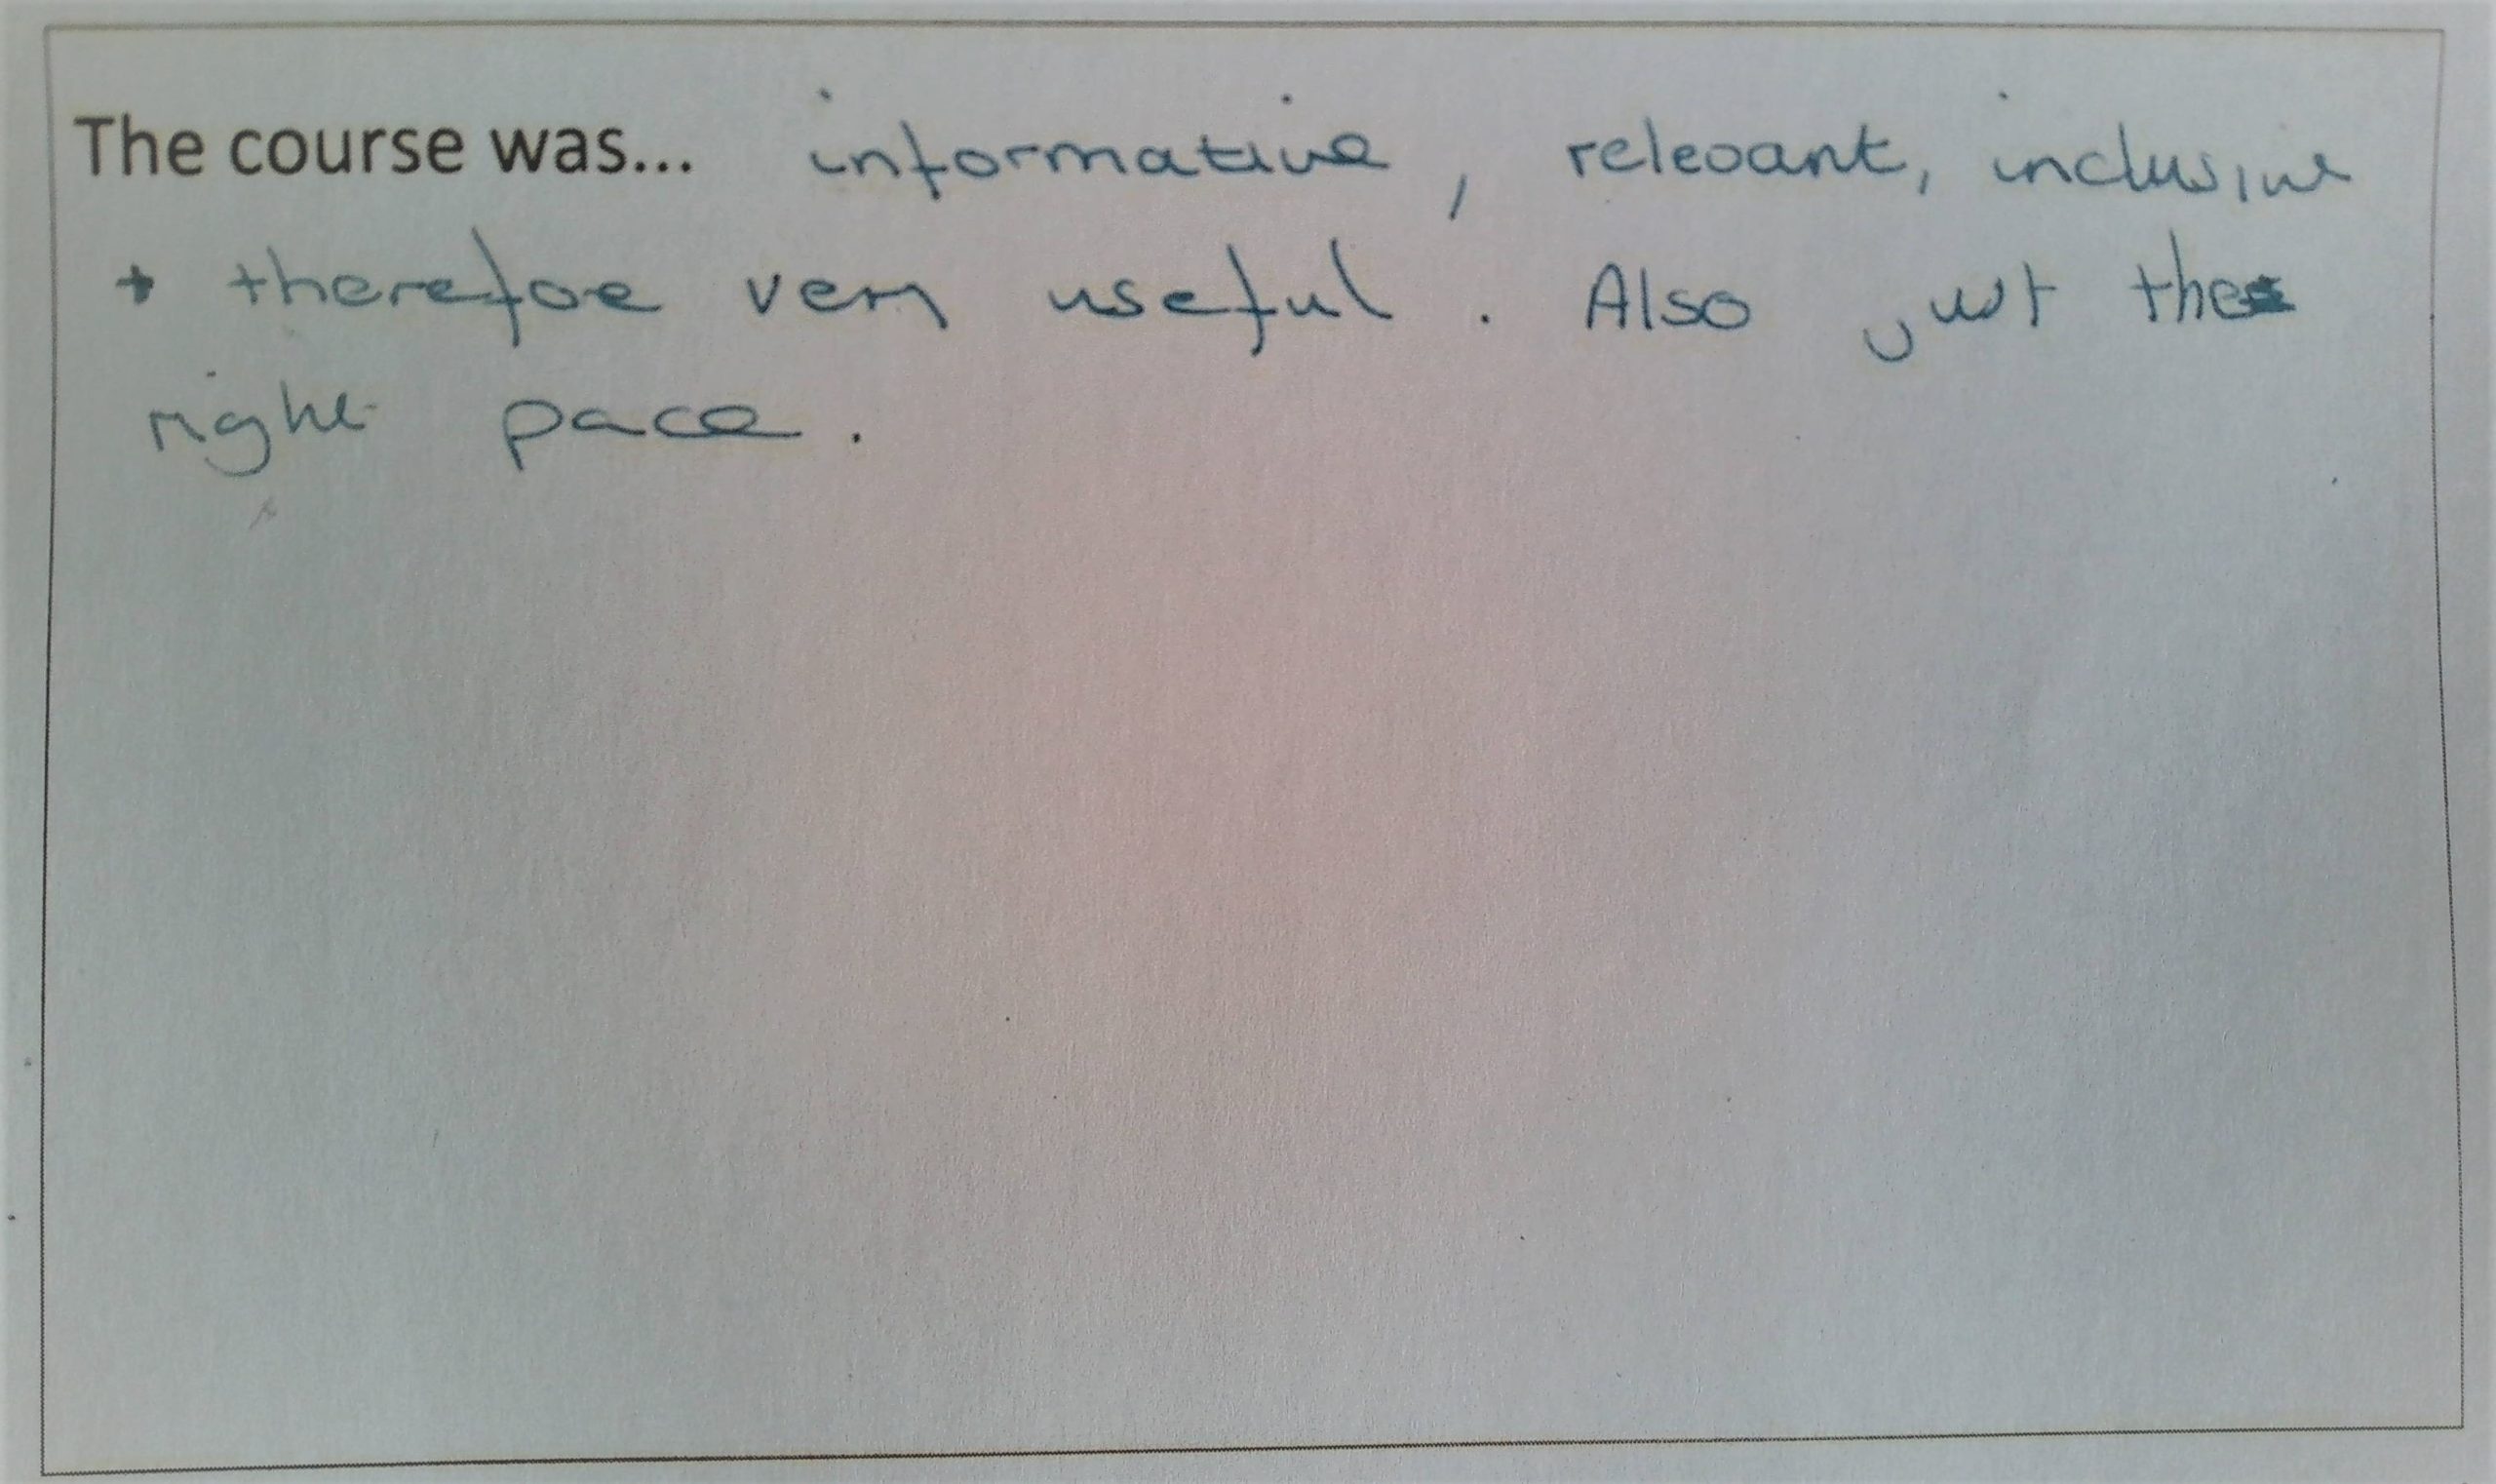 The course was... informative, relevant, inclusive
+ therefore very useful. Also just the
right pace.